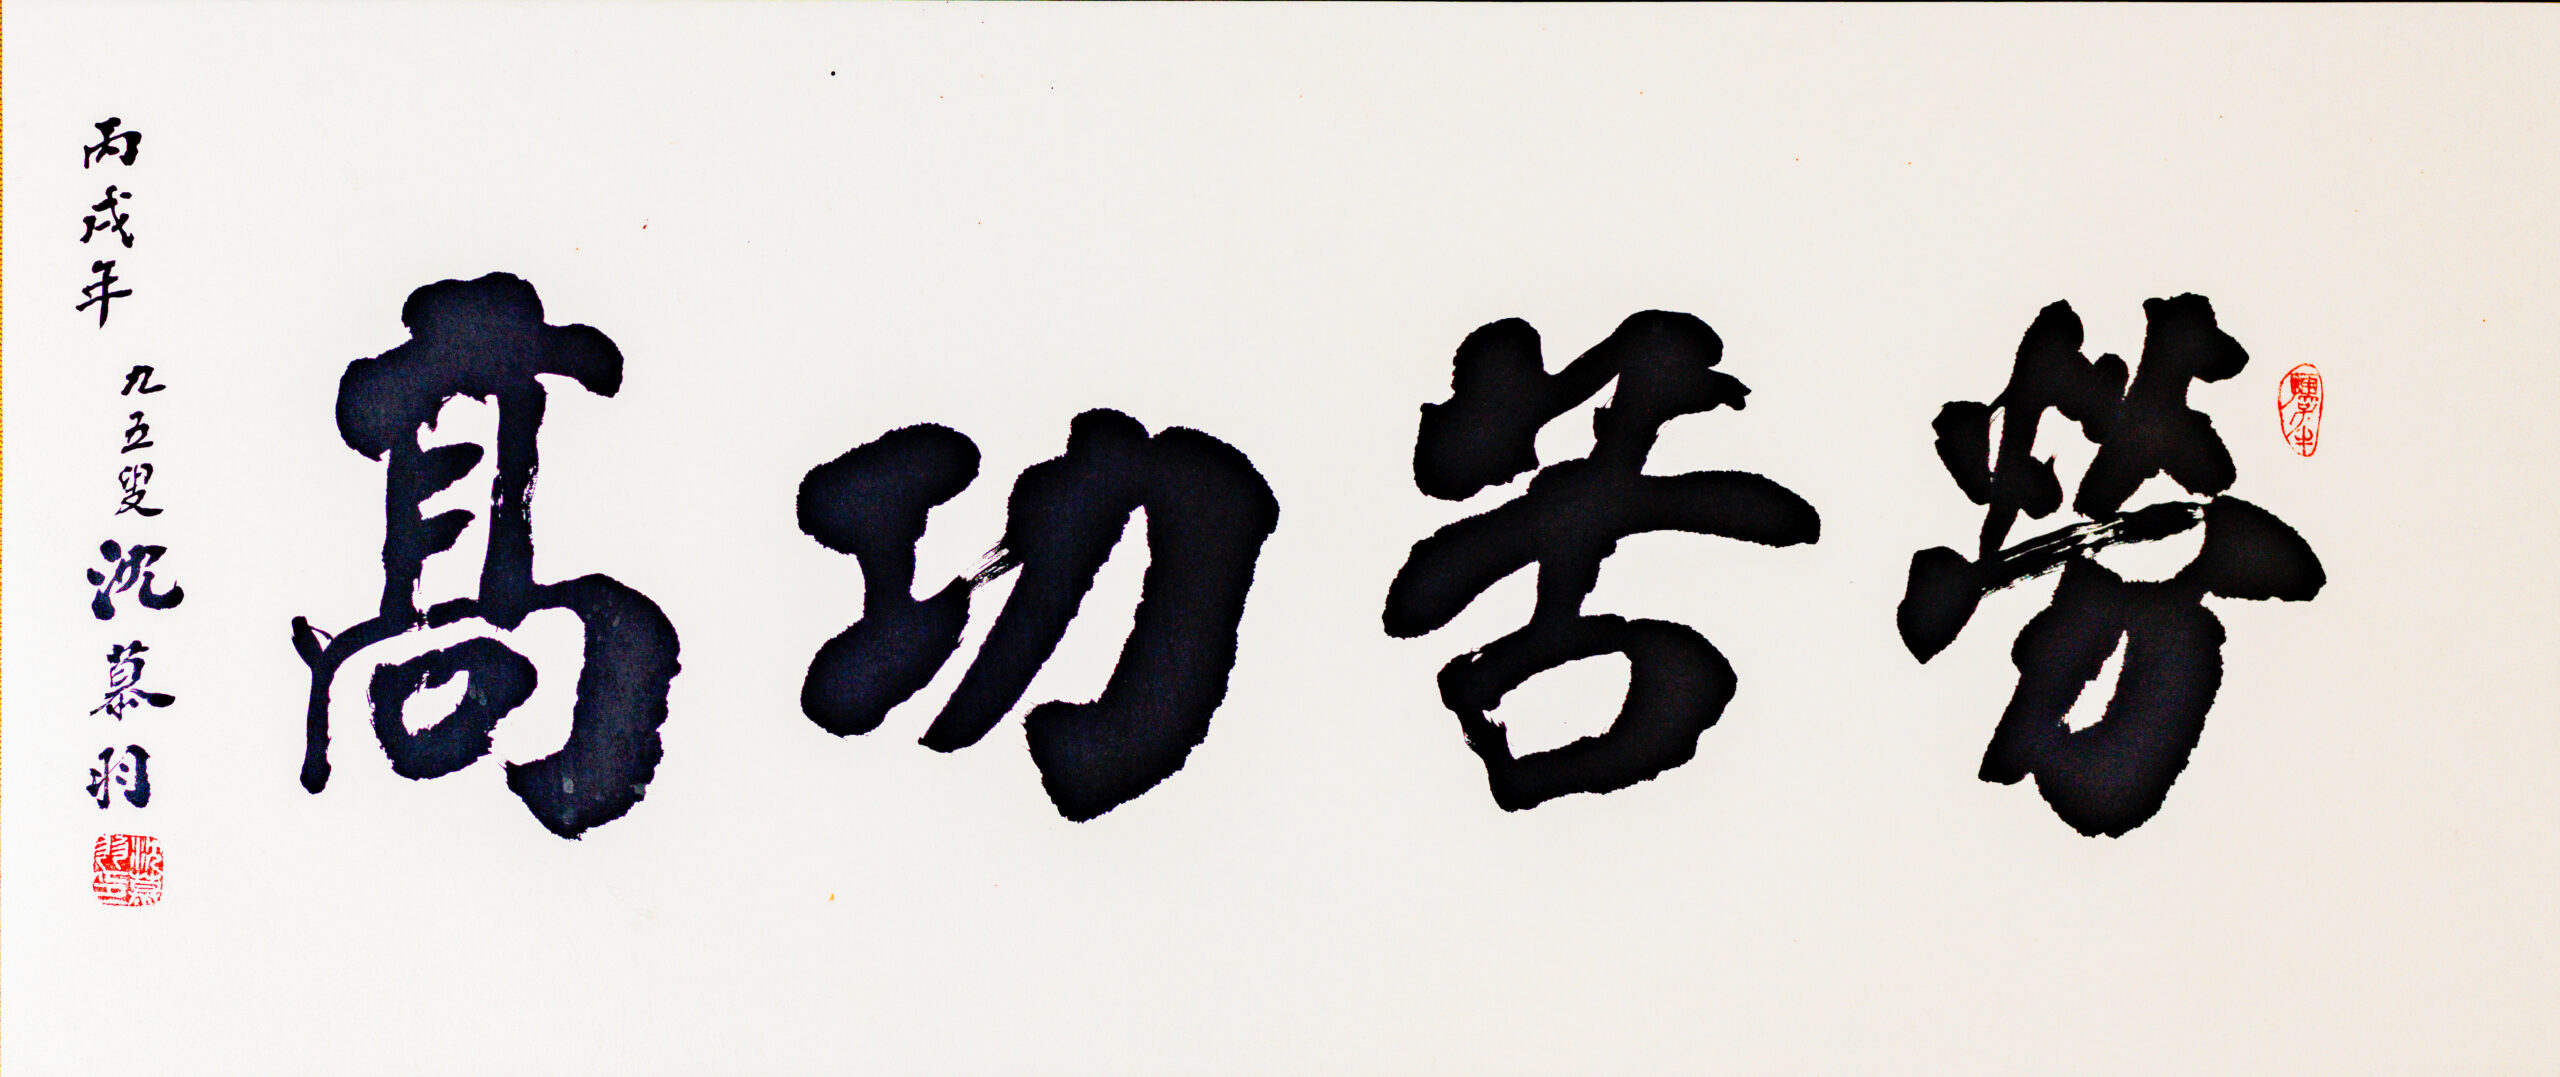 勞苦功髙
丙戌年 九五叟 沈慕羽